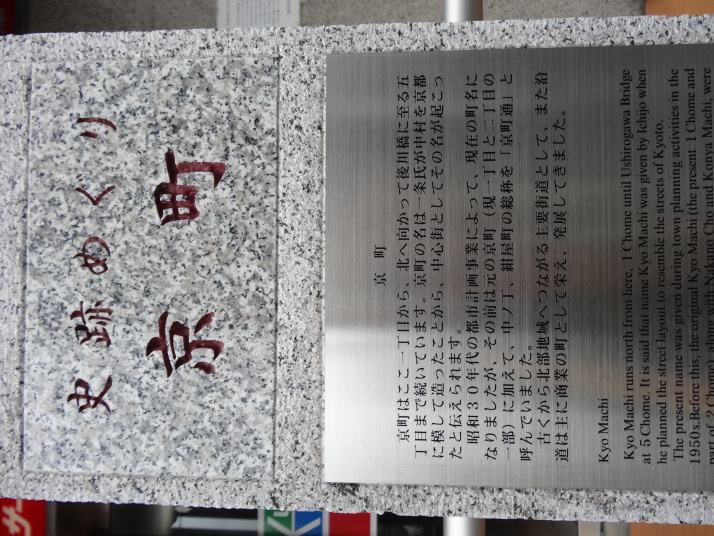 史跡めぐり
京町
京 町
京町はここ一丁目から、北へ向かって後川橋に至る五
丁目まで続いています。京町の名は一条氏が中村を京都
に模して造ったことから、中心街としてその名が起こっ
たと伝えられます。
昭和３０年代の都市計画事業によって、現在の町名に
なりましたが、その前は元の京町（現一丁目と二丁目の
一部）に加えて、中ノ丁、紺屋町の総称を「京町通」と
呼んでいました。
古くから北部地域へつながる主要街道として、また沿
道は主に商業の町として栄え、発展してきました。
Kyo Machi
Kyo Machi runs north from here, 1 Chome until Ushirogawa Bridge
at 5 Chome. It is said that name Kyo Machi was given by Ichijo when
he planned the street layout to resemble the streets of Kyoto.
The present name was given during town planning activities in the
1950s.Before this, the original Kyo Machi (the present 1 Chome and
part of 2 Chome), along with Nakano Cho and Konya Machi, were